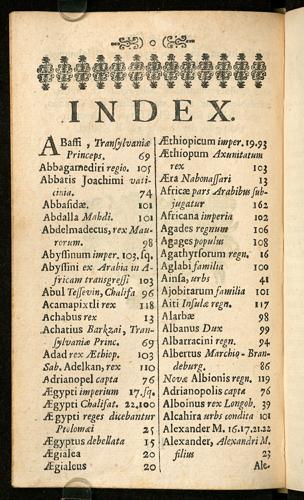 INDEX.
ABassi, Transylvaniæ
Princeps. 69
Abbagamediri regio. 105
Abbatis Joachimi vati-
cinia. 74
Abbasidæ. 101
Abdalla Mahdi. 101
Abdelmadecus, rex Mau-
rorum. 98
Abyssinum imper. 103, sq.
Abyssini ex Arabia in A-
fricam transgressi 103
Abul Tessevin, Chalifa 96
Acamapixtli rex 118
Achabus rex 13
Achatius Barkzai, Tran-
sylvaniæ Princ. 69
Adad rex Æthiop. 103
Sab. Adelkan, rex 110
Adrianopel capta 76
Ægypti imperium 17. sq.
Ægypti Chalifat. 22, 100
Ægypti reges dicebantur
Ptolomæi 25
Ægyptus debellata 15
Ægialea 20
Ægialeus 20
Æthiopicum imper. 19. 93
Æthiopum Axumitatum
rex 103
Æra Nabonassari 13
Africæ pars Arabibus sub-
jugatur 162
Africana imperia 102
Agades regnum 106
Agages populus 108
Agathyrsorum regn. 16
Aglabi familia 100
Ainsa, urbs 41
Ajobitarum familia 101
Aiti Insulæ regn. 117
Alarbæ 98
Albanus Dux 99
Albarracini regn. 94
Albertus Marchio-Bran-
deburg. 86
Novæ Albionis regn. 119
Adrianopolis capta 76
Alboinus rex Longob. 39
Alcahira urbs condita 101
Alexander M. 16. 17. 21. 22
Alexander, Alexandri M.
filius 23
Ale.